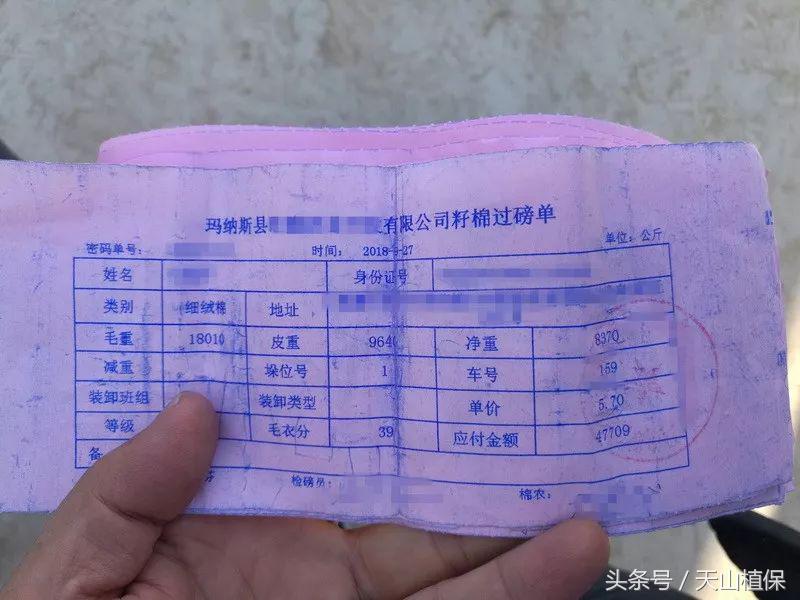 玛纳斯县 有限公司籽棉过磅单
密码单号: 时间: 2018-9-27 单位: 公斤
姓名 身份证号
类别 细绒棉 地址
毛重 18010 皮重 9640 净重 8370
减重 垛位号 1 车号 159
装卸班组 装卸类型 单价 5.70
等级 毛衣分 39 应付金额 47709
备
检磅员: 棉农:
头条号 / 天山植保